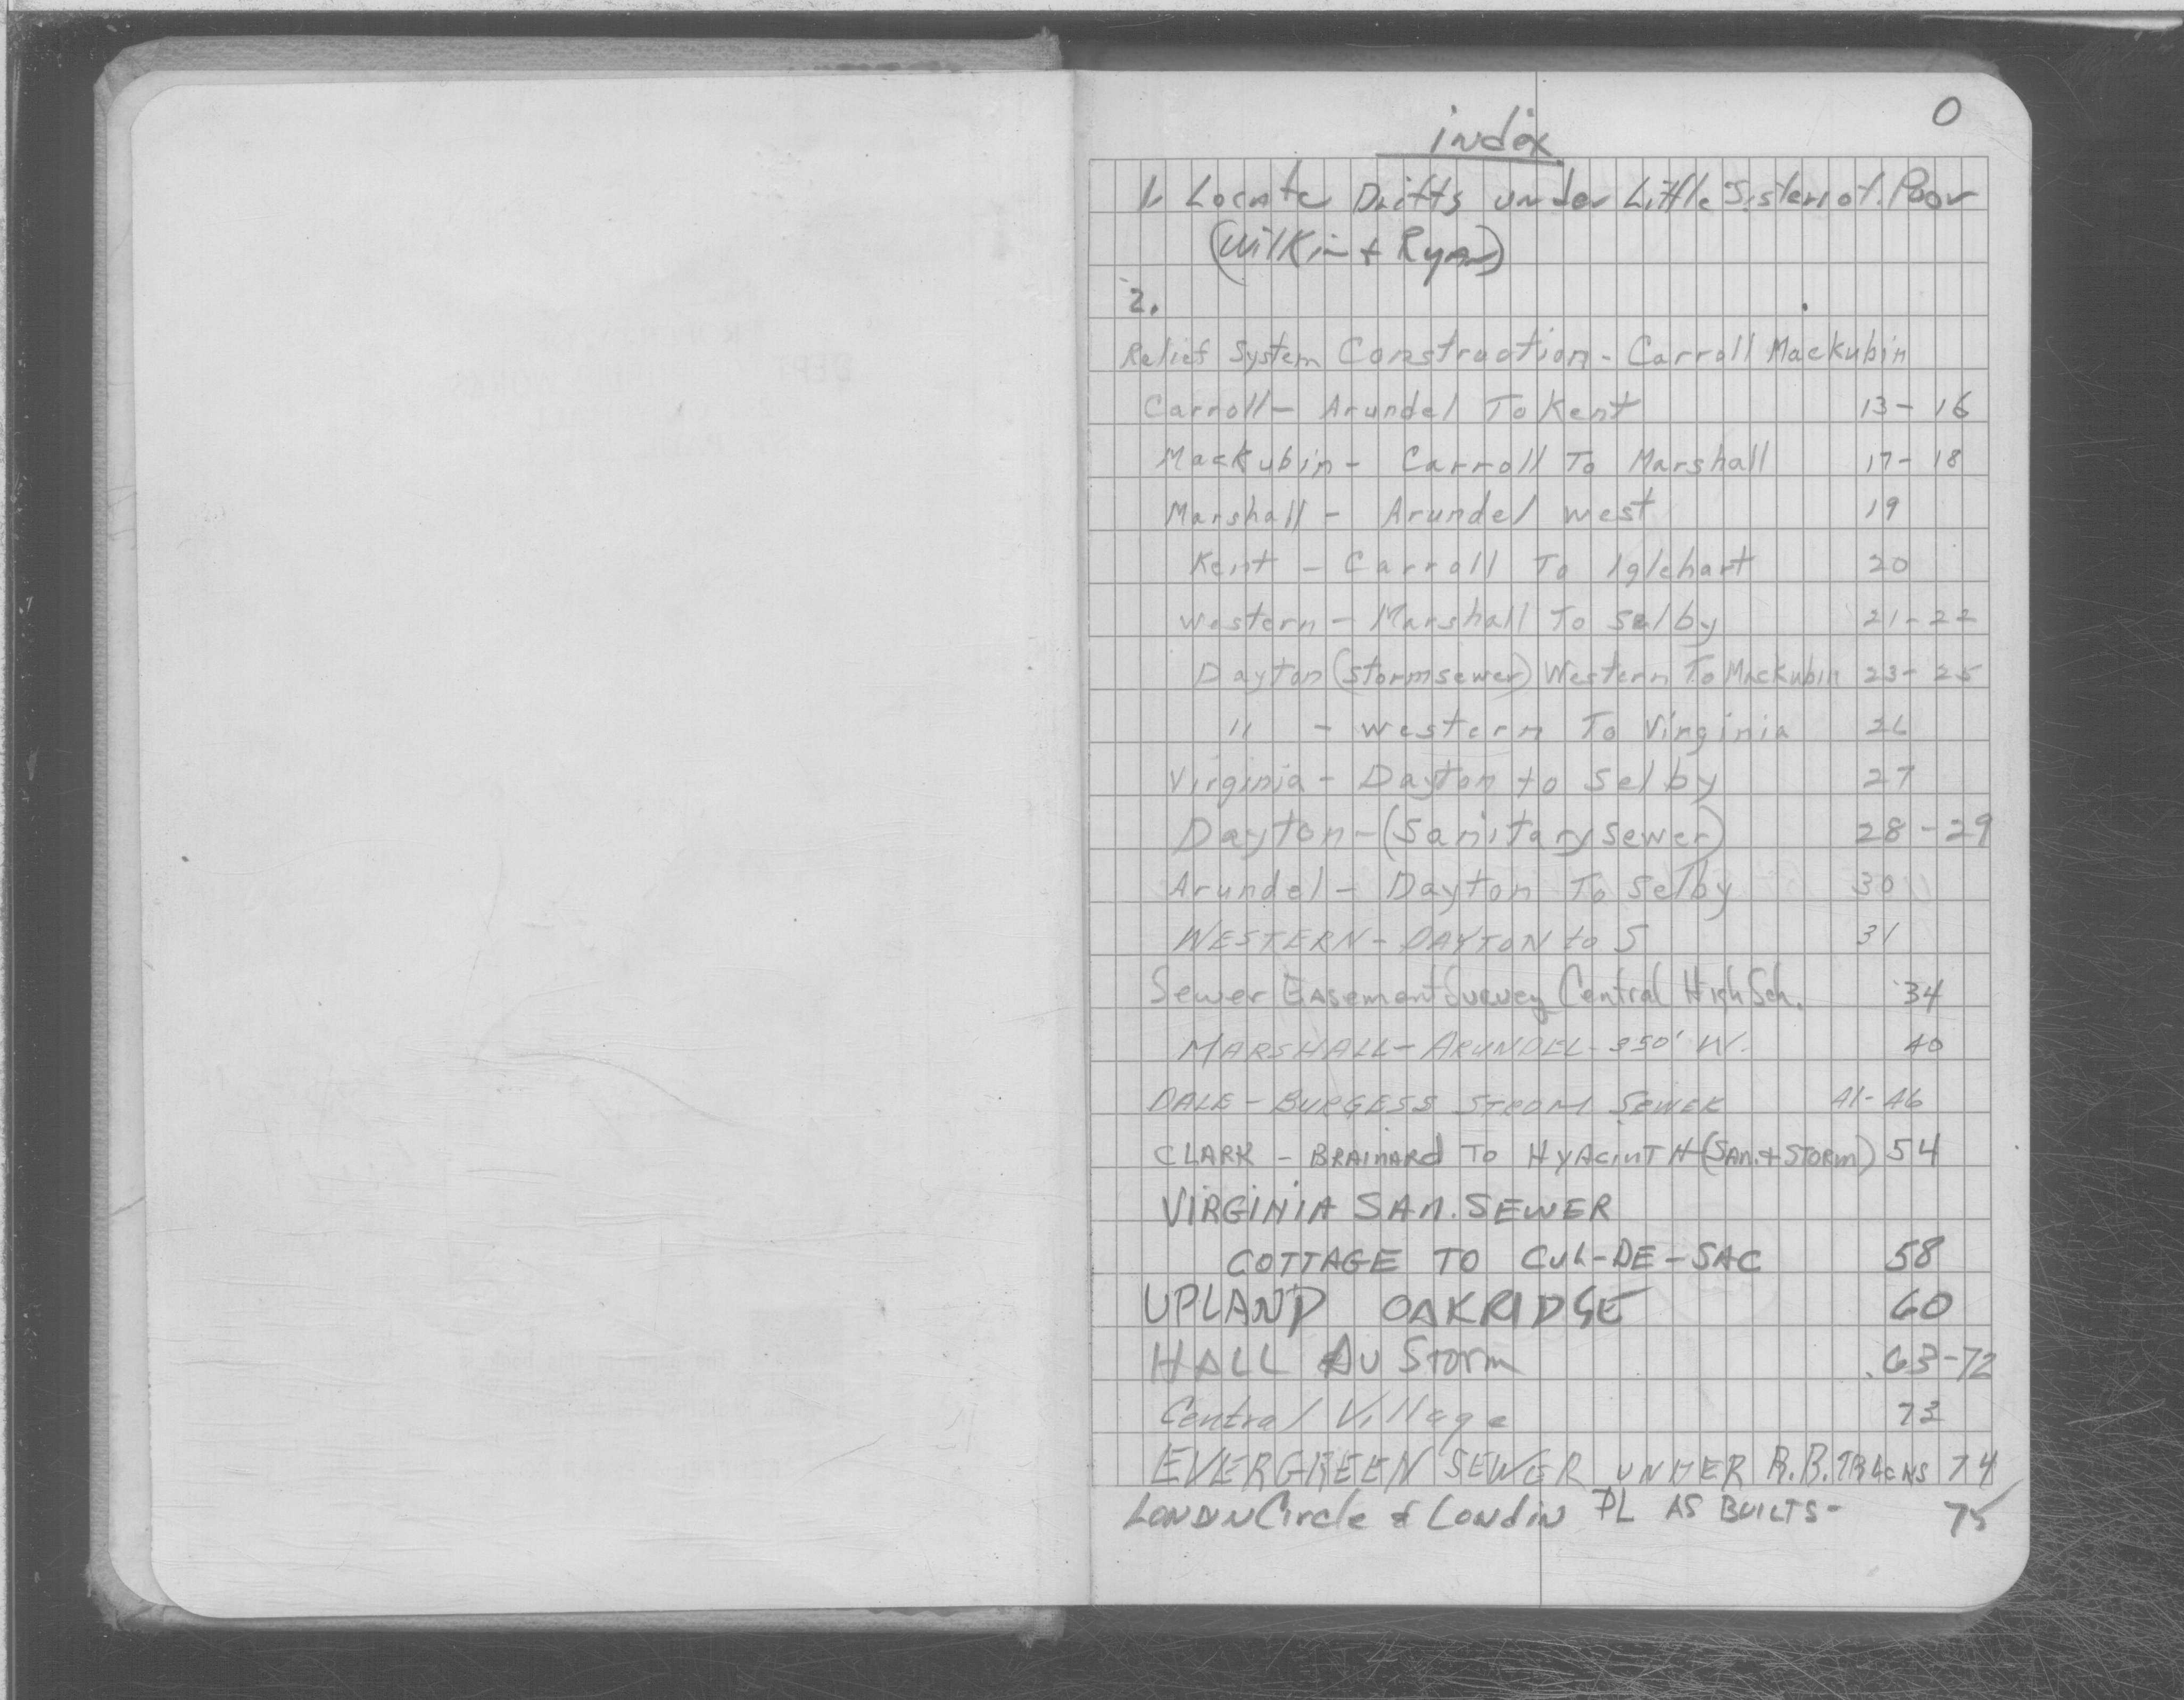 0
index
1. Locate Drifts under Little Sisters of Poor
(Wilkin + Ryan)
2.
Relief System Construction - Carroll Mackubin
Carroll - Arundel To Kent 13 - 16
Mackubin - Carroll To Marshall 17 - 18
Marshall - Arundel west 19
Kent - Carroll To Iglehart 20
Western - Marshall To Selby 21 - 22
Dayton (stormsewer) Western To Mackubin 23 - 25
" - western To Virginia 26
Virginia - Dayton to Selby 27
Dayton - (Sanitary Sewer) 28 - 29
Arundel - Dayton To Selby 30
WESTERN - DAYTON to S 31
Sewer Easement Survey Central High Sch. 34
MARSHALL - ARUNDEL - 350' W. 40
DALE - BURGESS STROM SEWER 41 - 46
CLARK - BRAINARd TO HYACINTH (SAN. + STORM) 54
VIRGINIA SAN. SEWER
COTTAGE TO CUL-DE-SAC 58
UPLAND OAKRIDGE 60
HALL AV Storm 63-72
Central Village 73
EVERGREEN SEWER UNDER R.R. TRACKS 74
LONDIN Circle & LONdiN PL AS BUILTS - 75